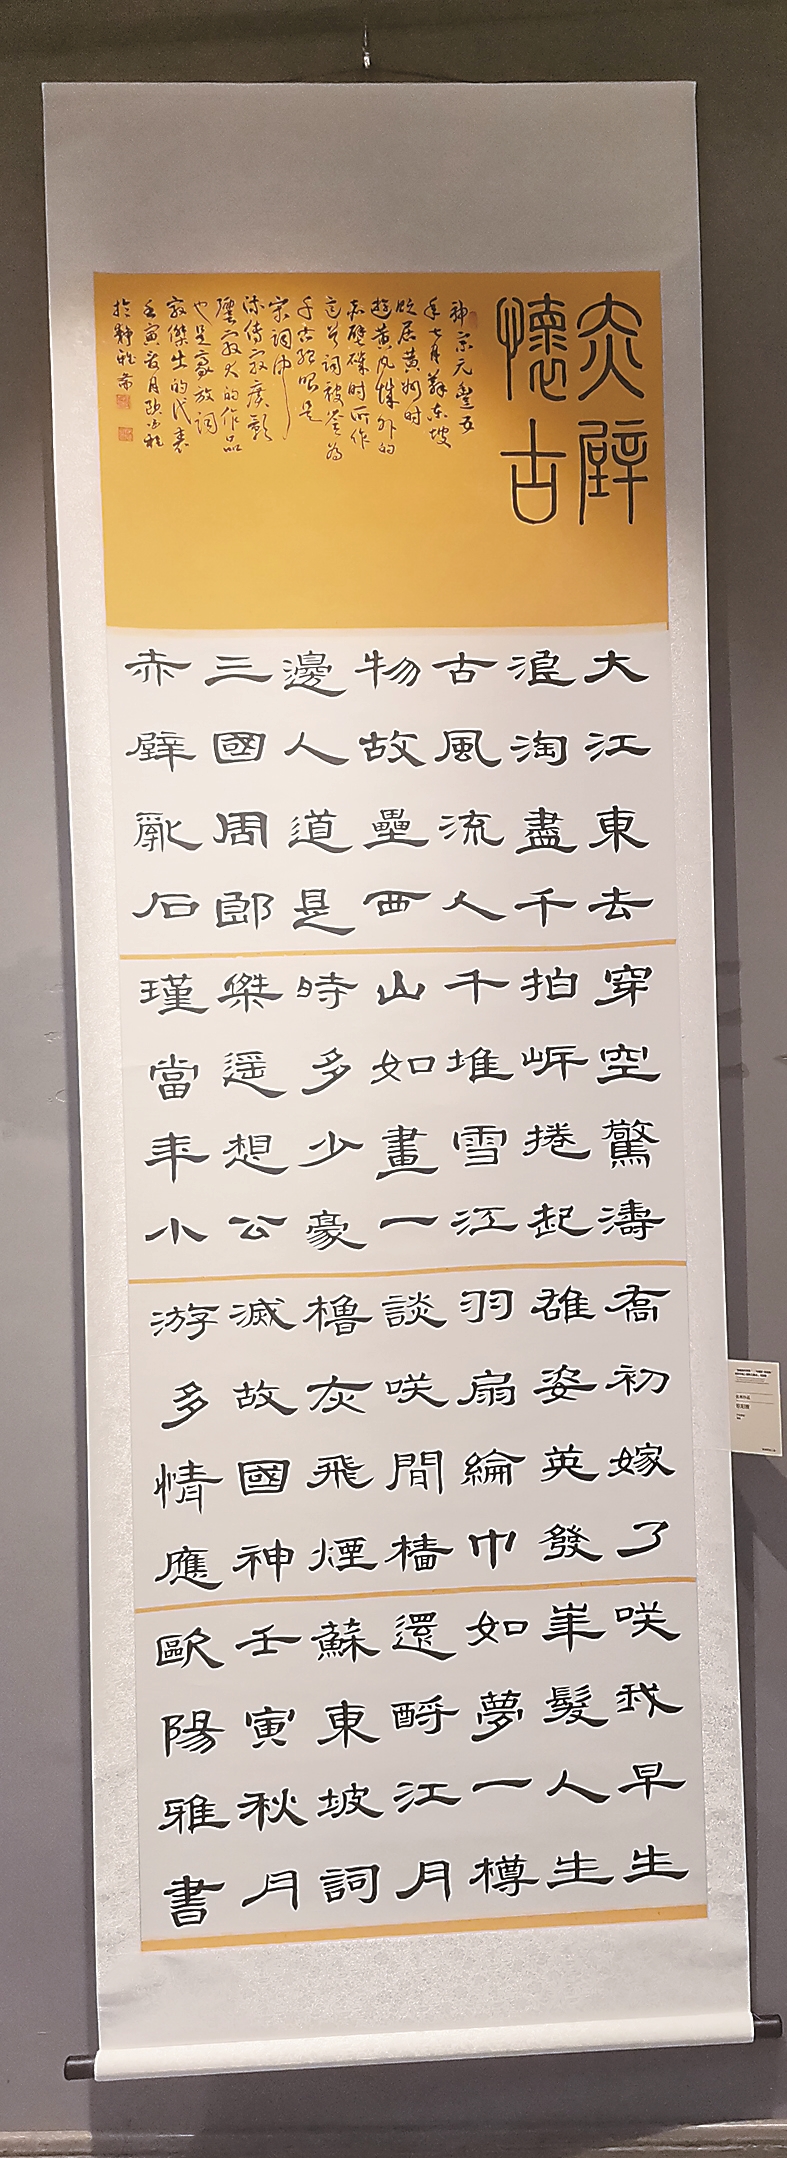 赤壁
懷古
神宗元豐五
年七月蘇東坡
貶居黃州时
遊黃凡城外的
赤壁磯时所作
這首詞被誉為
千古絕唱是
宋詞中
流傳最廣影
響最大的作品
也是豪放詞
最傑出的代表
壬寅秋月歐陽雅
於靜雅齋
大江東去
浪淘盡千
古風流人
物故壘西
邊人道是
三國周郎
赤壁亂石
穿空驚濤
拍岍捲起
千堆雪江
山如畫一
時多少豪
傑遥想公
瑾當年小
喬初嫁了
雄姿英發
羽扇綸巾
談咲間檣
櫓灰飛煙
滅故國神
游多情應
咲我早生
華髮人生
如夢一樽
還酹江月
蘇東坡詞
壬寅秋月
歐陽雅書